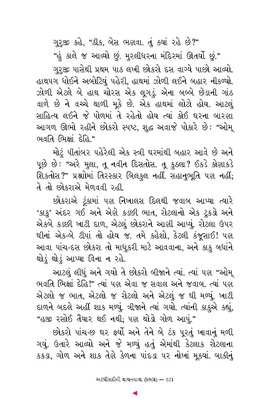 ગુરુજી કહે, "ઠીક, બેસ ભણવા. તું ક્યાં રહે છે?"
"હું કાલે જ આવ્યો છું. મુરલીધરના મંદિરમાં ઊતર્યો છું."
ગુરુજી પાસેથી પ્રથમ પાઠ લખી છોકરો દસ વાગ્યે પાછો આવ્યો.
હાથપગ ધોઈને અબોટિયું પહેરી, હાથમાં ઝોળી લઈને બહાર નીકળ્યો.
ઝોળી એટલે બે હાથ ચોરસ એક લૂગડું એના બબ્બે છેડાની ગાંઠ
વાળે છે ને વચ્ચે થાળી મૂકે છે. એક હાથમાં લોટો હોય. આટલું
સાહિત્ય લઈને જે પોળમાં તે રહેતો હોય ત્યાં કોઈ ઘરના બારણા
આગળ ઊભો રહીને છોકરો સ્પષ્ટ, શુદ્ધ અવાજે પોકારે છે: "ઓમ્
ભવતિ ભિક્ષાં દેહિ."
મોટું પીતાંબર પહેરેલી એક સ્ત્રી ઘરમાંથી બહાર આવે છે અને
પૂછે છે: "અરે મુલા, તૂ નવીન દિસતોસ. તૂ કુઠલા? ઈકડે કોણાકડે
શિકતોસ?" પ્રશ્નોમાં તિરસ્કાર બિલકુલ નહીં. સહાનુભૂતિ પણ નહીં;
તે તો છોકરાએ મેળવવી રહી.
છોકરાએ ટૂંકામાં પણ નિખાલસ દિલથી જવાબ આપ્યા ત્યારે
'કાકુ' અંદર ગઈ અને એણે કડછી ભાત, રોટલાનો એક ટુકડો અને
એકબે કડછી ખાટી દાળ, એટલું છોકરાને આણી આપ્યું. રોટલા ઉપર
ઘીનાં એકબે ટીપાં તો હોય જ. તમે કહેશો, કેટલી કંજૂસાઈ! પણ
આવા પાંચ-દસ છોકરા તો માધુકરી માટે આવવાના, અને કાકુ બધાંને
થોડું થોડું આપ્યા વિના ન રહે.
આટલું લીધું અને ગયો તે છોકરો બીજાને ત્યાં. ત્યાં પણ "ઓમ્
ભવતિ ભિક્ષાં દેહિ!" ત્યાં પણ એવા જ સવાલ અને જવાબ. ત્યાં પણ
એટલો જ ભાત, એટલો જ રોટલો અને એટલું જ ઘી મળ્યું. ખાટી
દાળને બદલે અહીં શાક મળ્યું. ત્રીજાને ત્યાં ગયો. ત્યાંની કાકુએ કહ્યું,
"હજી રસોઈ તૈયાર થઈ નથી; પણ થોડો ગોળ આપું."
છોકરો પાંચ-છ ઘર ફર્યો અને તેને બે ટંક પૂરતું ખાવાનું મળી
ગયું. ઉતારે આવ્યો અને જે મળ્યું હતું એમાંથી કેટલાક રોટલાના
કકડા, ગોળ અને શાક તેણે કેળના પાંદડા પર નોખાં મૂક્યાં. બાકીનું